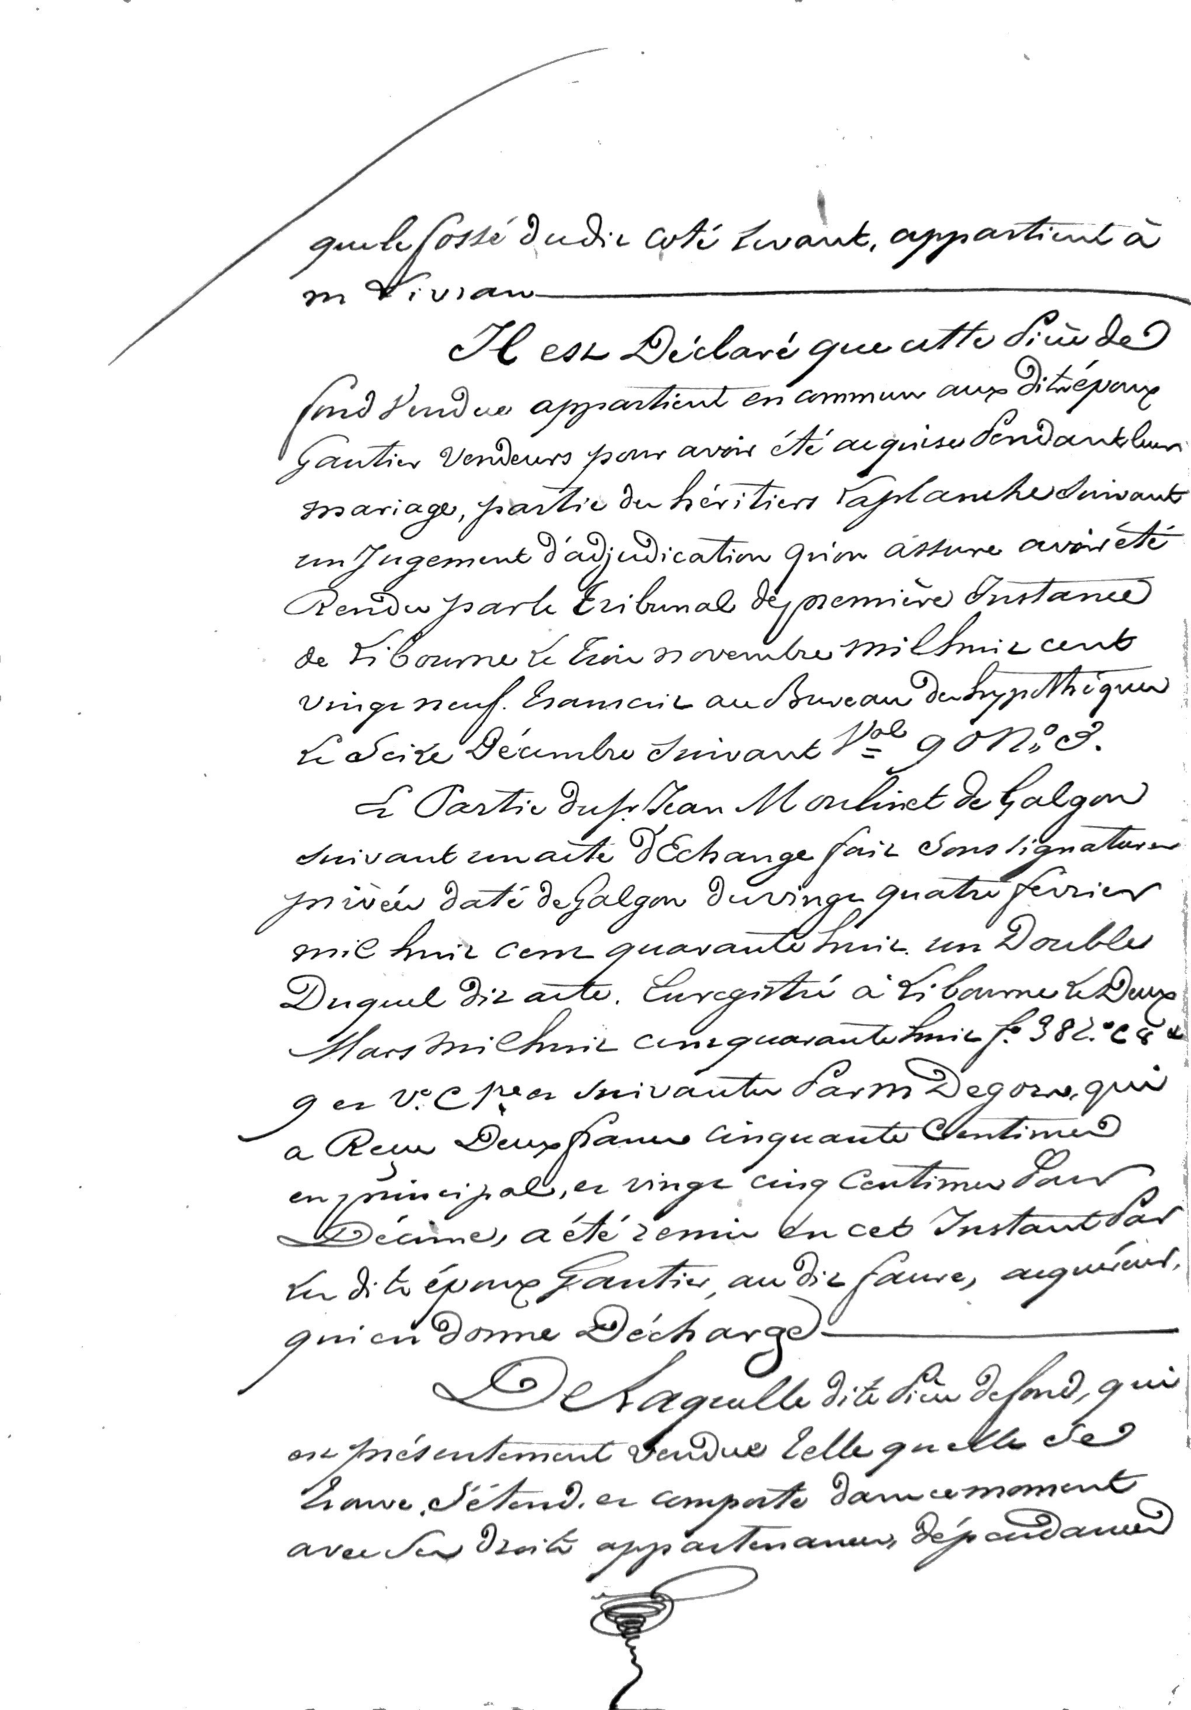 que le fossé dudit coté Levant, appartient à
m Vivian
Il est Déclaré que cette Pièce de
fond Vendue appartient en commun aux dits époux
Gautier Vendeurs pour avoir été acquise Pendant leur
mariage, partie des héritiers Laplanche Suivant
un Jugement d'adjudication qu'on assure avoir été
Rendu par le Tribunal de première Instance
de Libourne le Trois novembre mil huit cent
vingt neuf. Transcrit au Bureau des hypothèques
le Seize Décembre Suivant Vol. 90 N° 3.
Et Partie du sr. Jean Moulinet de Galgon
suivant un acte d'Echange fait Sous signatures
privées daté de Galgon du vingt quatre fevrier
mil huit cent quarante huit. un Double
Duquel dit acte. Enregistré à Libourne le Deux
Mars mil huit cent quarante huit f° 38 r° C 8 &
9 et V° C 1re et Suivantes Par m Degors, qui
a Reçu Deux francs cinquante Centimes
en principal, et vingt cinq Centimes Pour
Décime, a été remis en cet Instant Par
Les dits époux Gautier, au dit faure, acquéreur,
qui en donne Décharge
De Laquelle dite Pièce de fond, qui
est présentement vendue Telle quelle Se
Trouve, S'étend. et comporte dans ce moment
avec Ses droits appartenances, dépendances